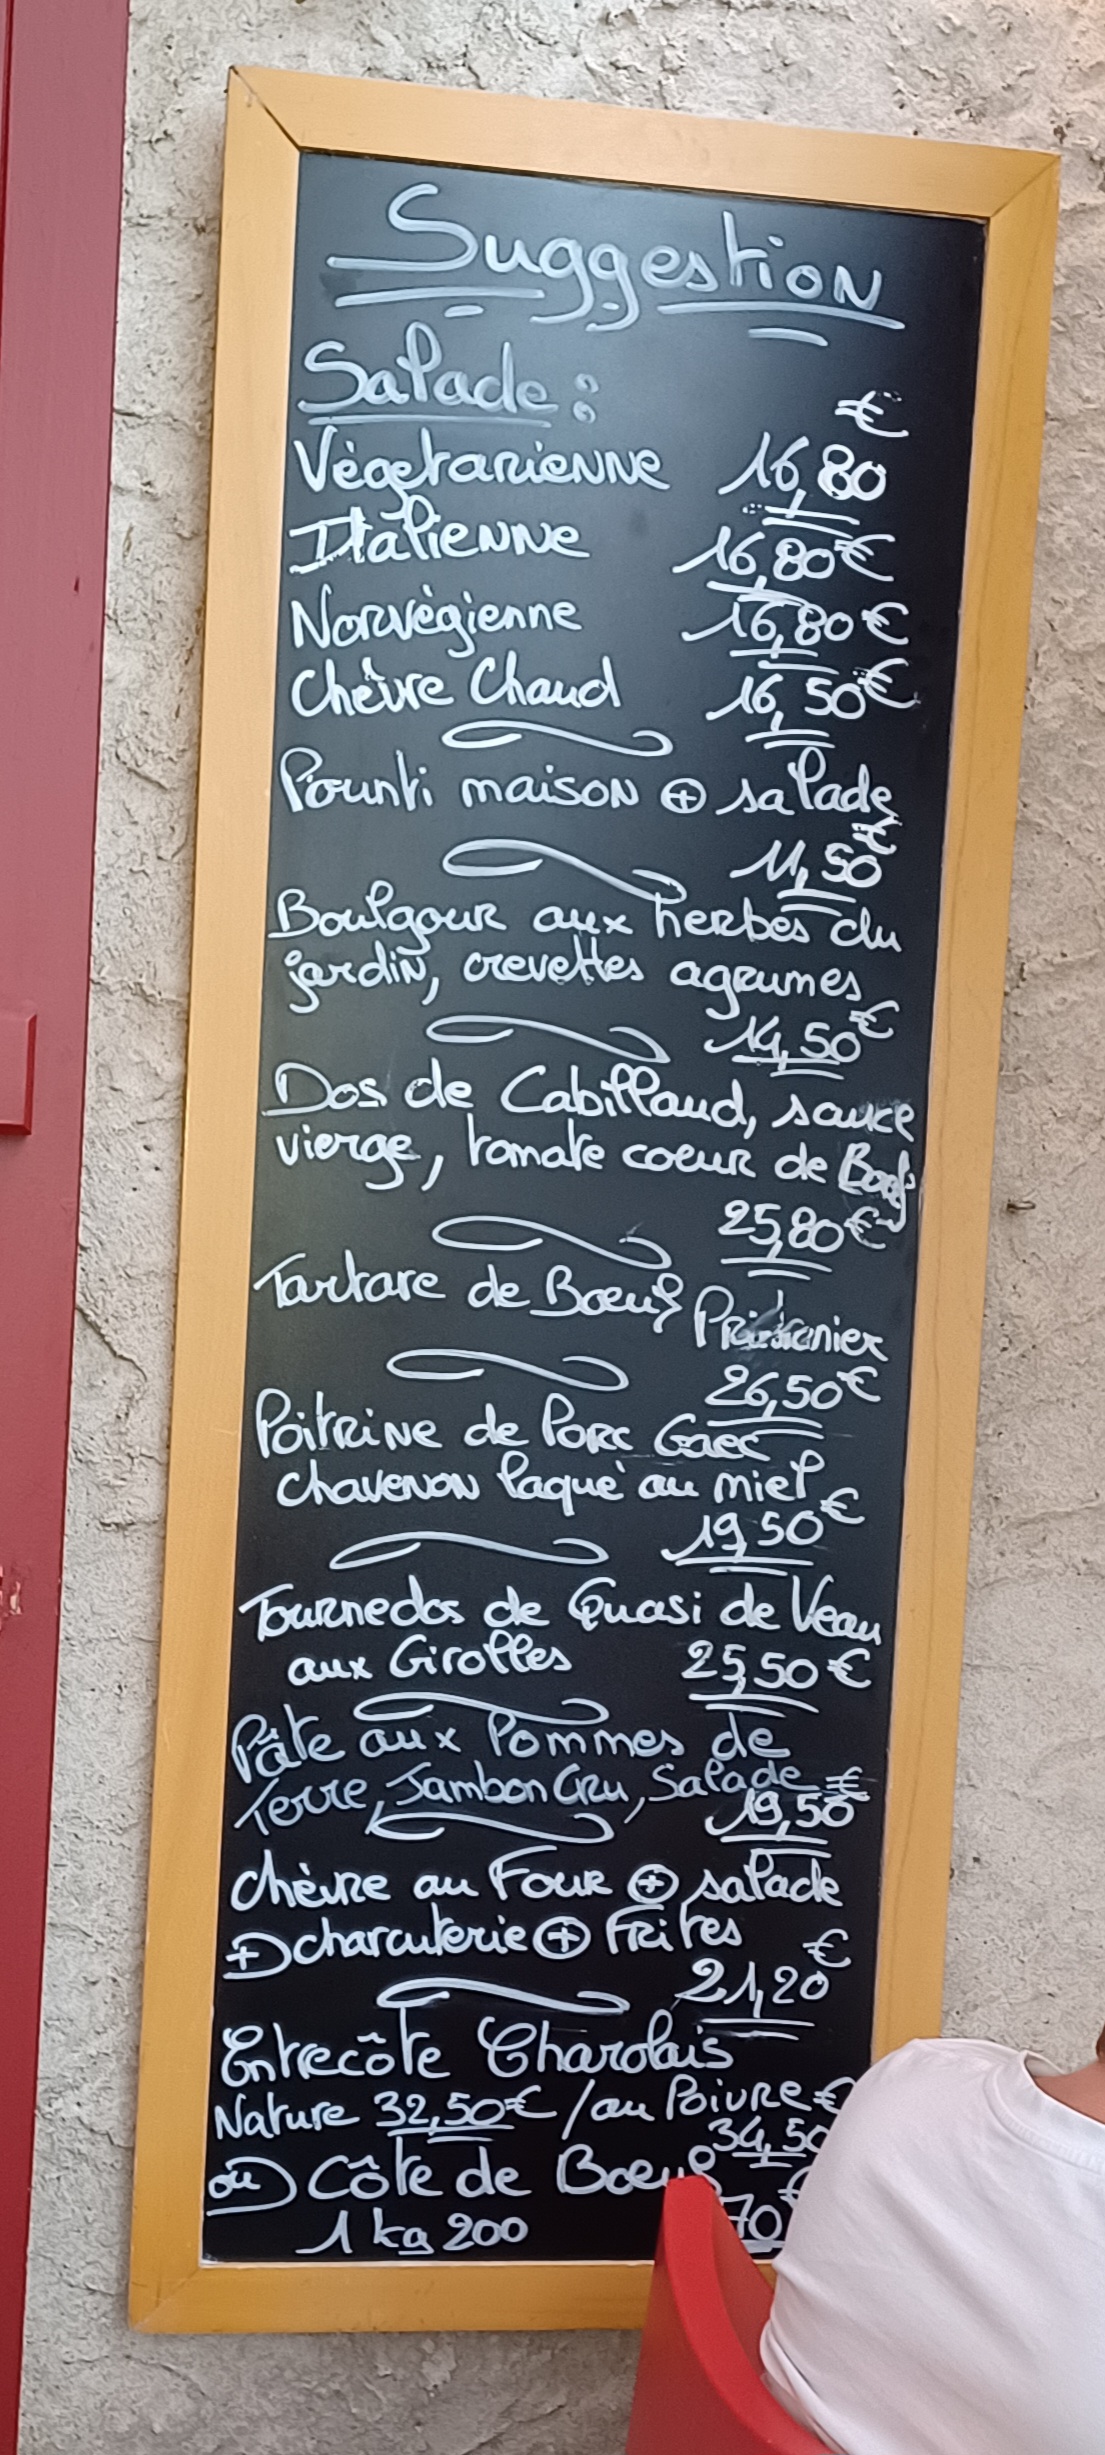 Suggestion
Salade :
Végetarienne 16,80 €
Italienne 16,80 €
Norvègienne 16,80 €
Chèvre Chaud 16,50 €
Pounti maison + salade
11,50 €
Boulgour aux herbes du
jardin, crevettes agrumes
14,50 €
Dos de Cabillaud, sauce
vierge, tomate coeur de Boeuf
25,80 €
Tartare de Bœuf
26,50 €
Poitrine de Porc Gaec
chavenon laquè au miel
19,50 €
Tournedos de Quasi de Veau
aux Girolles 25,50 €
Pâte aux Pommes de
Terre, Jambon Cru, Salade
19,50 €
chèvre au Four + salade
+ charcuterie + Frites
21,20 €
Entrecôte Charolais
Nature 32,50 € / au Poivre €
34,50
ou Côte de Bœuf
1 kg 200 70 €